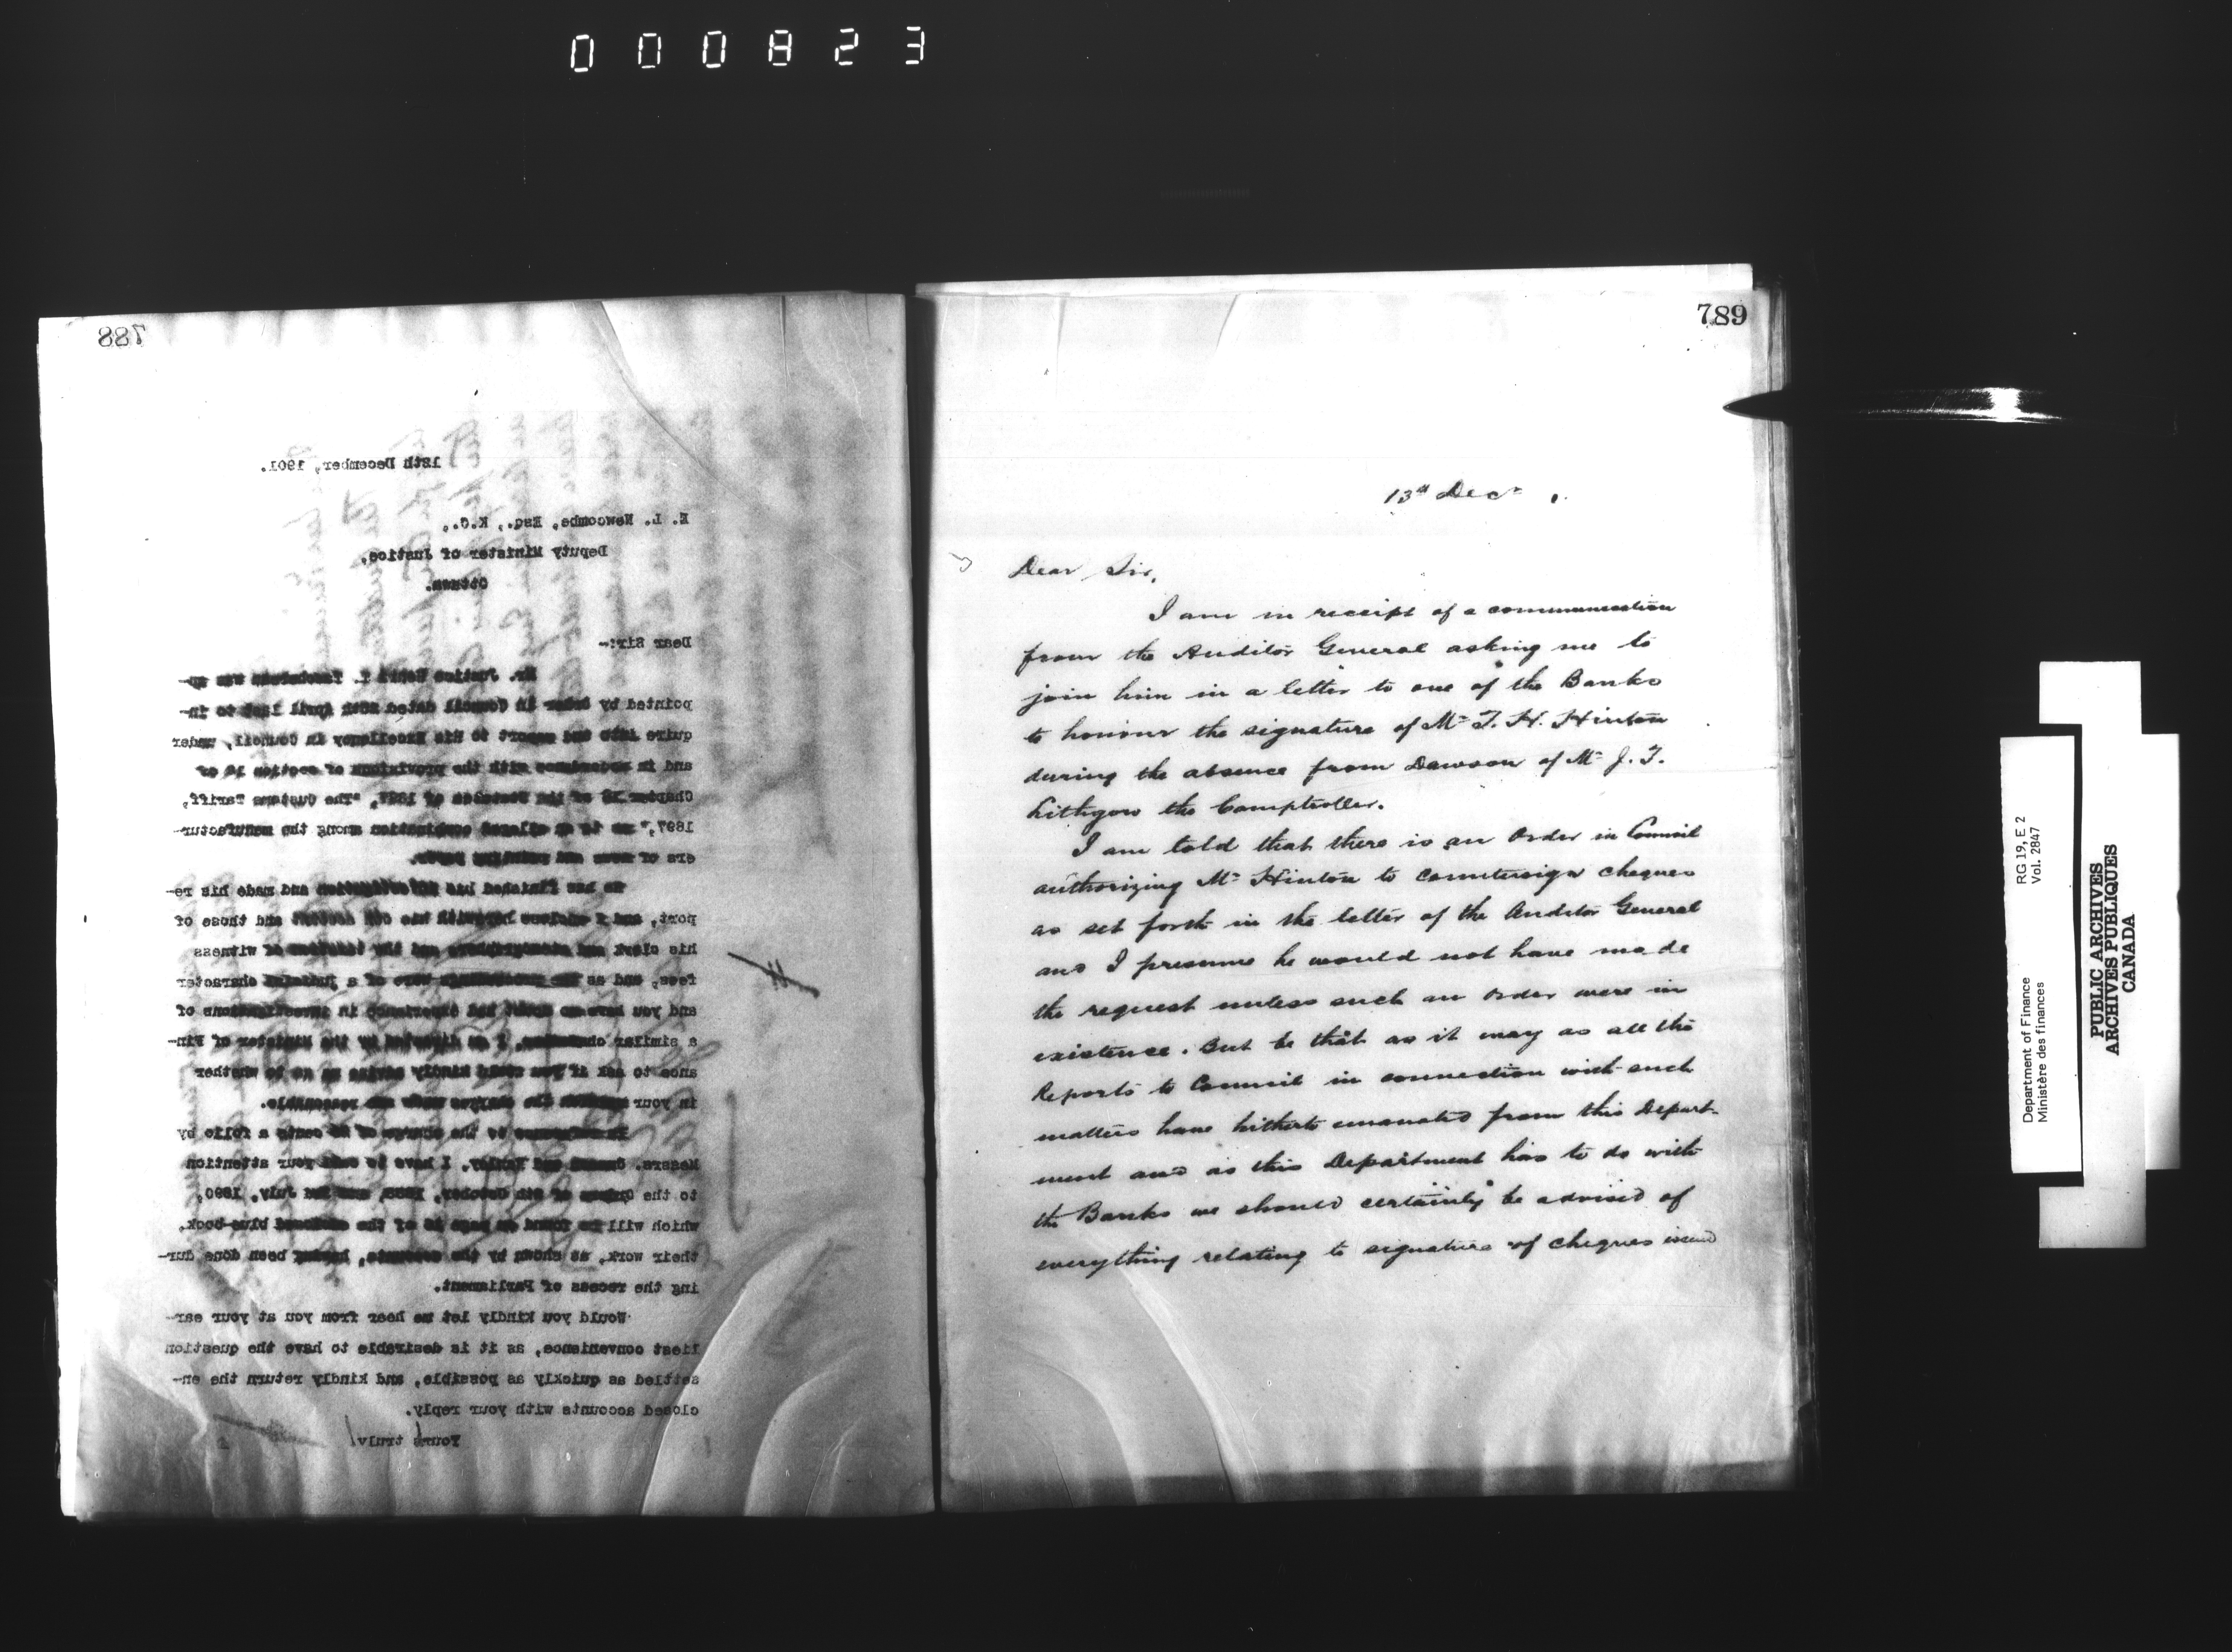 000823
788
12th December, 1901.
E. L. Newcombe, Esq., K.C.,
Deputy Minister of Justice,
Ottawa.
Dear Sir:-
Mr. Justice Henri T. Taschereau was ap-
pointed by Order in Council dated April last to in-
quire into and report to His Excellency in Council, under
and in accordance with the provisions of section 18 of
Chapter 16 of the Statutes of 1897, "The Customs Tariff,
1897," as to an alleged combination among the manufactur-
ers of news and printing paper.
He has finished his investigation and made his re-
port, and I enclose herewith his own account and those of
his clerk and stenographers and the taxation of witness
fees, and as the proceedings were of a judicial character
and you have no doubt had experience in investigations of
a similar character, I am directed by the Minister of Fin-
ance to ask if you would kindly advise me as to whether
in your opinion the charges made are reasonable.
In reference to the charge of cents a folio by
Messrs. and I have to call your attention
to the of 8th October, and 1st July, 1890,
which will be found on page of the enclosed blue-book,
their work, as shown by the accounts, having been done dur-
ing the recess of Parliament.
Would you kindly let me hear from you at your ear-
liest convenience, as it is desirable to have the question
settled as quickly as possible, and kindly return the en-
closed accounts with your reply.
Yours truly
789
13th Decr 1.
Dear Sir,
I am in receipt of a communication
from the Auditor General asking me to
join him in a letter to one of the Banks
to honour the signature of Mr T. H. Hinton
during the absence from Dawson of Mr J. T.
Lithgow the Comptroller.
I am told that there is an Order in Council
authorizing Mr Hinton to countersign cheques
as set forth in the letter of the Auditor General
and I presume he would not have made
the request unless such an Order were in
existence. But be that as it may as all the
Reports to Council in connection with such
matters have hitherto emanated from this Depart-
ment and as this Department has to do with
the Banks we should certainly be advised of
everything relating to signature of cheques issued
Department of Finance RG 19, E 2
Ministère des finances Vol. 2847
PUBLIC ARCHIVES
ARCHIVES PUBLIQUES
CANADA